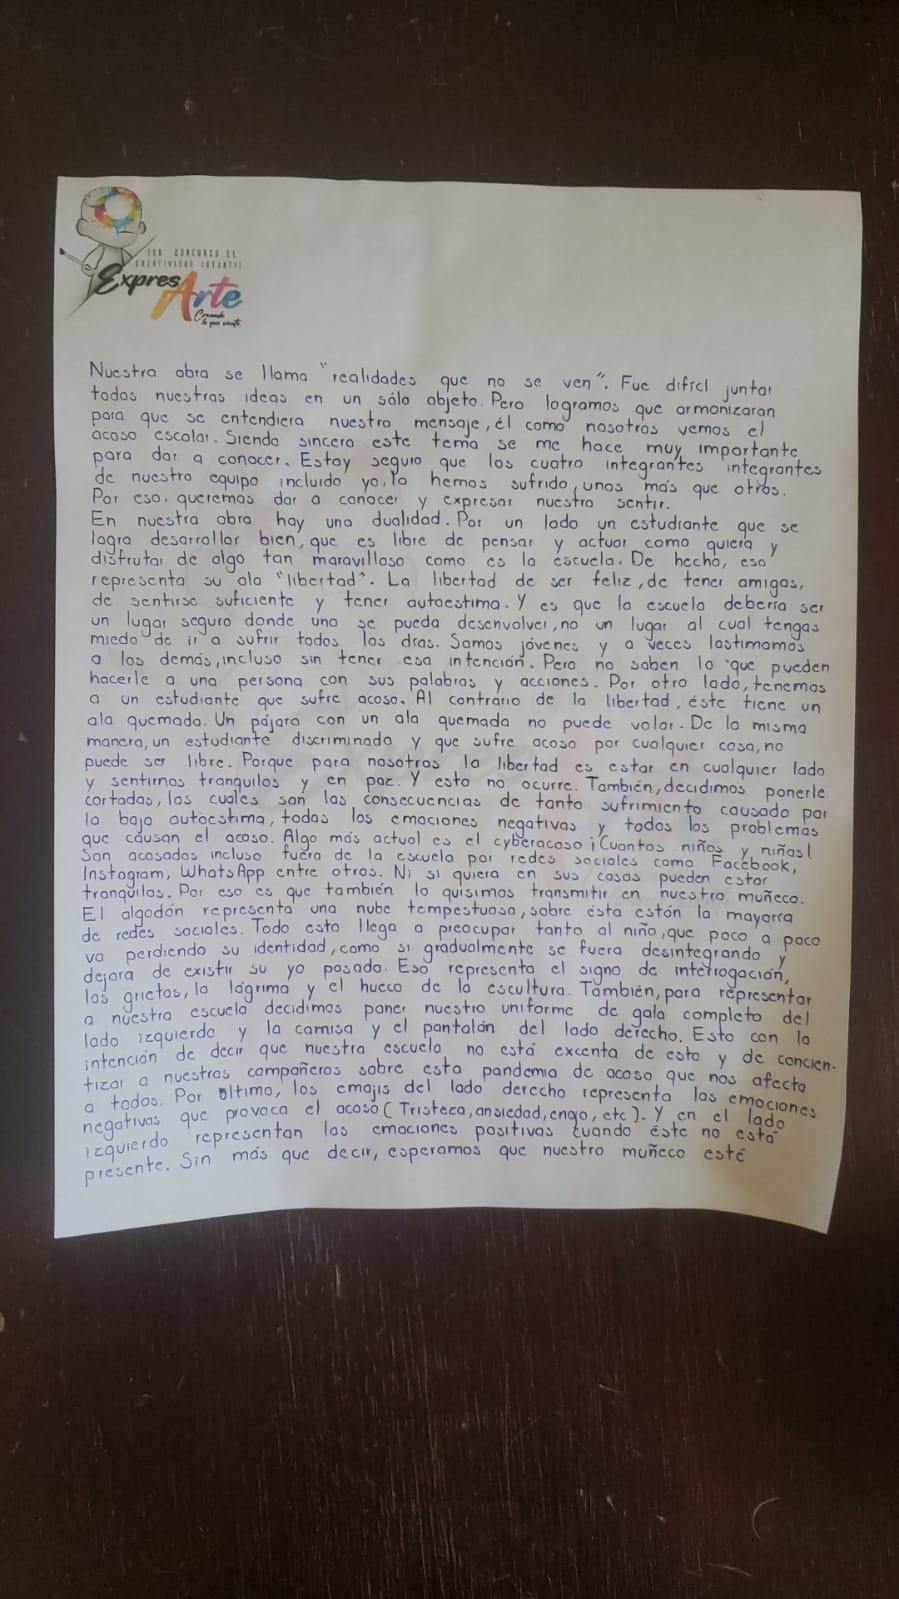 1ER. CONCURSO DE
CREATIVIDAD INFANTIL
ExpresArte
Creando
lo que siento
Nuestra obra se llama "realidades que no se ven". Fue difícil juntar
todas nuestras ideas en un sólo objeto. Pero logramos que armonizaran
para que se entendiera nuestro mensaje, él como nosotros vemos el
acoso escolar. Siendo sincera este tema se me hace muy importante
para dar a conocer. Estoy seguro que los cuatro integrantes integrantes
de nuestro equipo incluido yo, lo hemos sufrido, unos más que otros.
Por eso, queremos dar a conocer y expresar nuestro sentir.
En nuestra obra hay una dualidad. Por un lado un estudiante que se
logra desarrollar bien, que es libre de pensar y actuar como quiera y
disfrutar de algo tan maravilloso como es la escuela. De hecho, eso
representa su ala "libertad". La libertad de ser feliz, de tener amigas,
de sentirse suficiente y tener autoestima. Y es que la escuela debería ser
un lugar seguro donde uno se pueda desenvolver, no un lugar al cual tengas
miedo de ir a sufrir todos los días. Somos jóvenes y a veces lastimamos
a los demás, incluso sin tener esa intención. Pero no saben lo que pueden
hacerle a una persona con sus palabras y acciones. Por otro lado, tenemos
a un estudiante que sufre acoso. Al contrario de la libertad, éste tiene un
ala quemada. Un pájaro con un ala quemada no puede volar. De la misma
manera, un estudiante discriminado y que sufre acoso por cualquier cosa, no
puede ser libre. Porque para nosotros la libertad es estar en cualquier lado
y sentirnos tranquilos y en paz. Y esto no ocurre. También, decidimos ponerle
cortadas, las cuales son las consecuencias de tanto sufrimiento causado por
la baja autoestima, todas las emociones negativas y todos los problemas
que causan el acoso. Algo más actual es el cyberacoso ¡Cuantos niños y niñas!
Son acosados incluso fuera de la escuela por redes sociales como Facebook,
Instagram, WhatsApp entre otros. Ni si quiera en sus casas pueden estar
tranquilos. Por eso es que también lo quisimos transmitir en nuestro muñeco.
El algodón representa una nube tempestuosa, sobre ésta están la mayoría
de redes sociales. Todo esto llega a preocupar tanto al niño, que poco a poco
va perdiendo su identidad, como si gradualmente se fuera desintegrando y
dejara de existir su yo pasado. Eso representa el signo de interrogación,
las grietas, la lágrima y el hueco de la escultura. También, para representar
a nuestra escuela decidimos poner nuestro uniforme de gala completo del
lado izquierdo y la camisa y el pantalón del lado derecho. Esto con la
intención de decir que nuestra escuela no está excenta de esto y de concien-
tizar a nuestros compañeros sobre esta pandemia de acoso que nos afecta
a todos. Por último, los emojis del lado derecho representa las emociones
negativas que provoca el acoso (Tristeza, ansiedad, enojo, etc). Y en el lado
izquierdo representan las emociones positivas cuando éste no está
presente. Sin más que decir, esperamos que nuestro muñeco esté